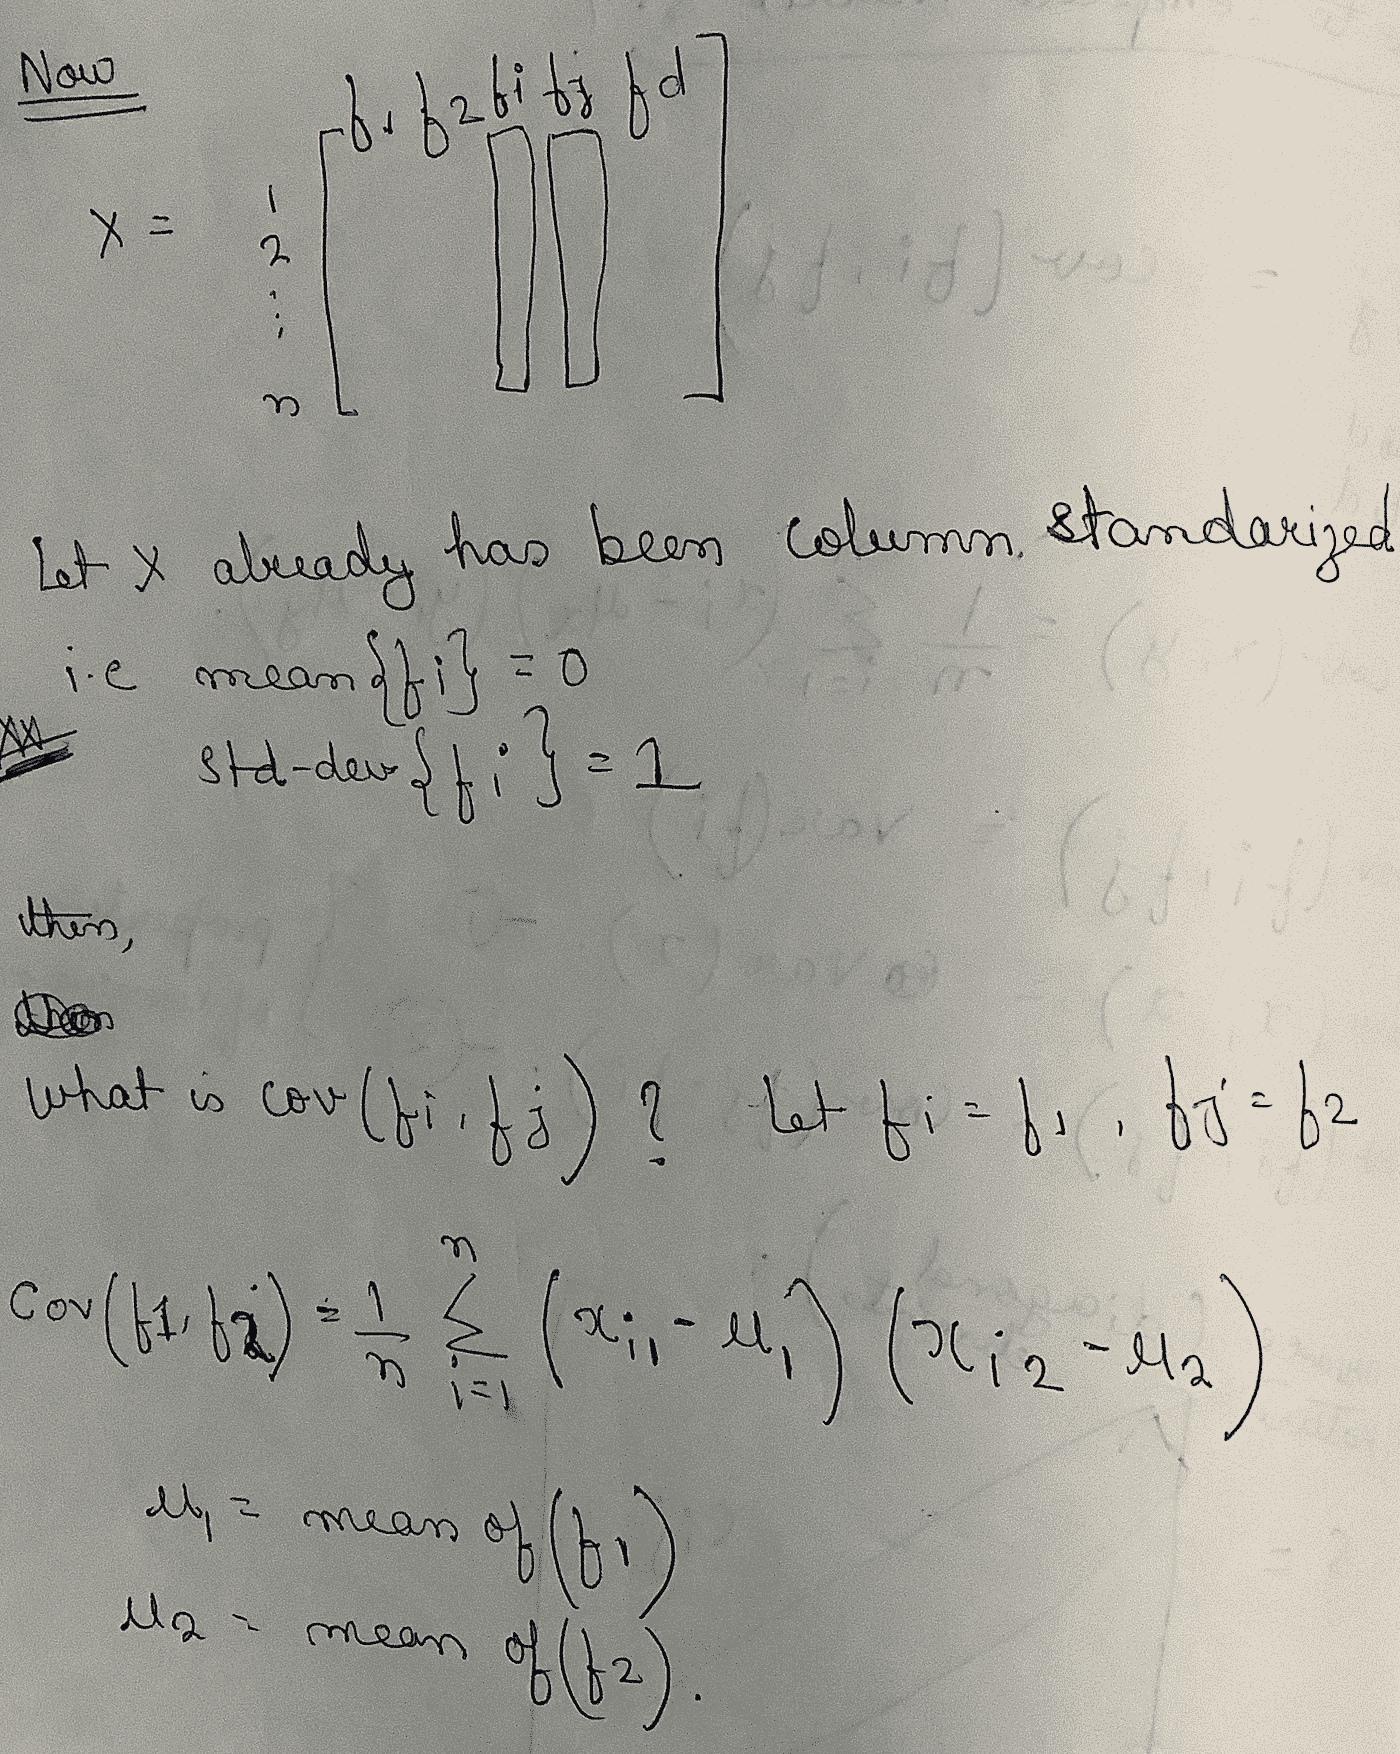 Now
f1 f2 fi fj fd
X =
1
2
⋮
n
Let X already has been column. standarized
i.e mean{fi} = 0
std-dev{fi} = 1
then,
What is cov(fi, fj) ? Let fi = f1, fj = f2
Cov(f1, f2) = 1/n Σ i=1 n (xi1 - μ1) (xi2 - μ2)
μ1 = mean of (f1)
μ2 = mean of (f2).